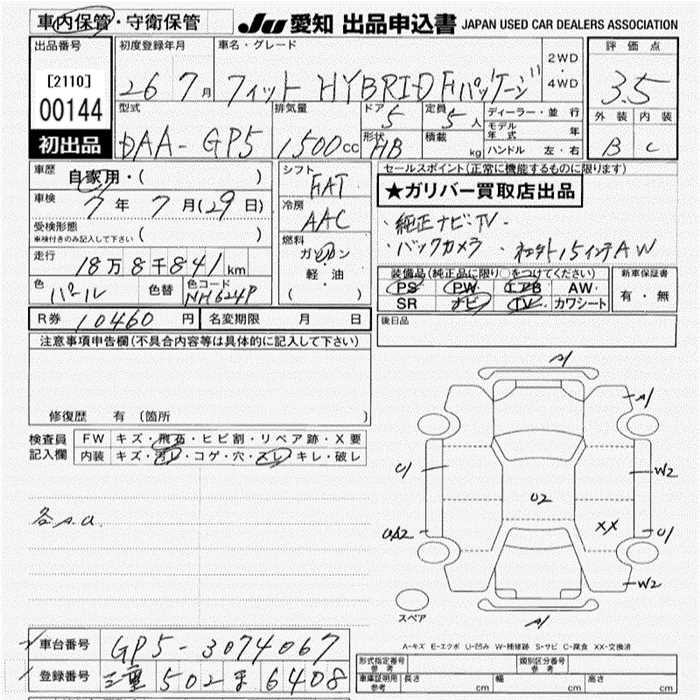 車内保管・守衛保管 JU 愛知 出品申込書 JAPAN USED CAR DEALERS ASSOCIATION
出品番号 初度登録年月 車名・グレード 2WD・4WD 評価点
[2110] 26 7月 フィット HYBRID Fパッケージ 3.5
00144
型式 排気量 ドア 5 定員 5人 ディーラー・並行 外装 内装
初出品 DAA-GP5 1500cc 形状 HB 積載 kg モデル年式 年 B C
ハンドル 左・右
車歴 自家用・( ) シフト FAT セールスポイント(正常に機能するものに限ります)
★ガリバー買取店出品
車検 7年 7月(29日) 冷房 AAC
・純正ナビ・TV・
受検形態 ( )
車検付きのみ記入して下さい
燃料 ガソリン・軽油 ( )
・バックカメラ ・社外15インチAW
走行 18万8千841km
装備品(純正品に限り○をつけてください) 新車保証書
色 パール 色替 色コード NH624P
PS PW エアB AW 有・無
SR ナビ TV カワシート
R券 10460円 名変期限 月 日 後日品
注意事項申告欄(不具合内容等は具体的に記入して下さい)
修復歴 有 (箇所 )
検査員記入欄 FW キズ・飛石・ヒビ割・リペア跡・X要
内装 キズ・汚レ・コゲ・穴・スレ・キレ・破レ
各A.a.
A1
A1
U1
W2
U2
XX
UA2
U1
W2
A1
スペア
A-キズ E-エクボ U-凹み W-補修跡 S-サビ C-腐食 XX-交換済
車台番号 GP5-3074067
登録番号 三重 502 ま 6408
形式指定番号 参考 類別区分番号 参考
車庫証明用 参考 長さ cm 幅 cm 高さ cm